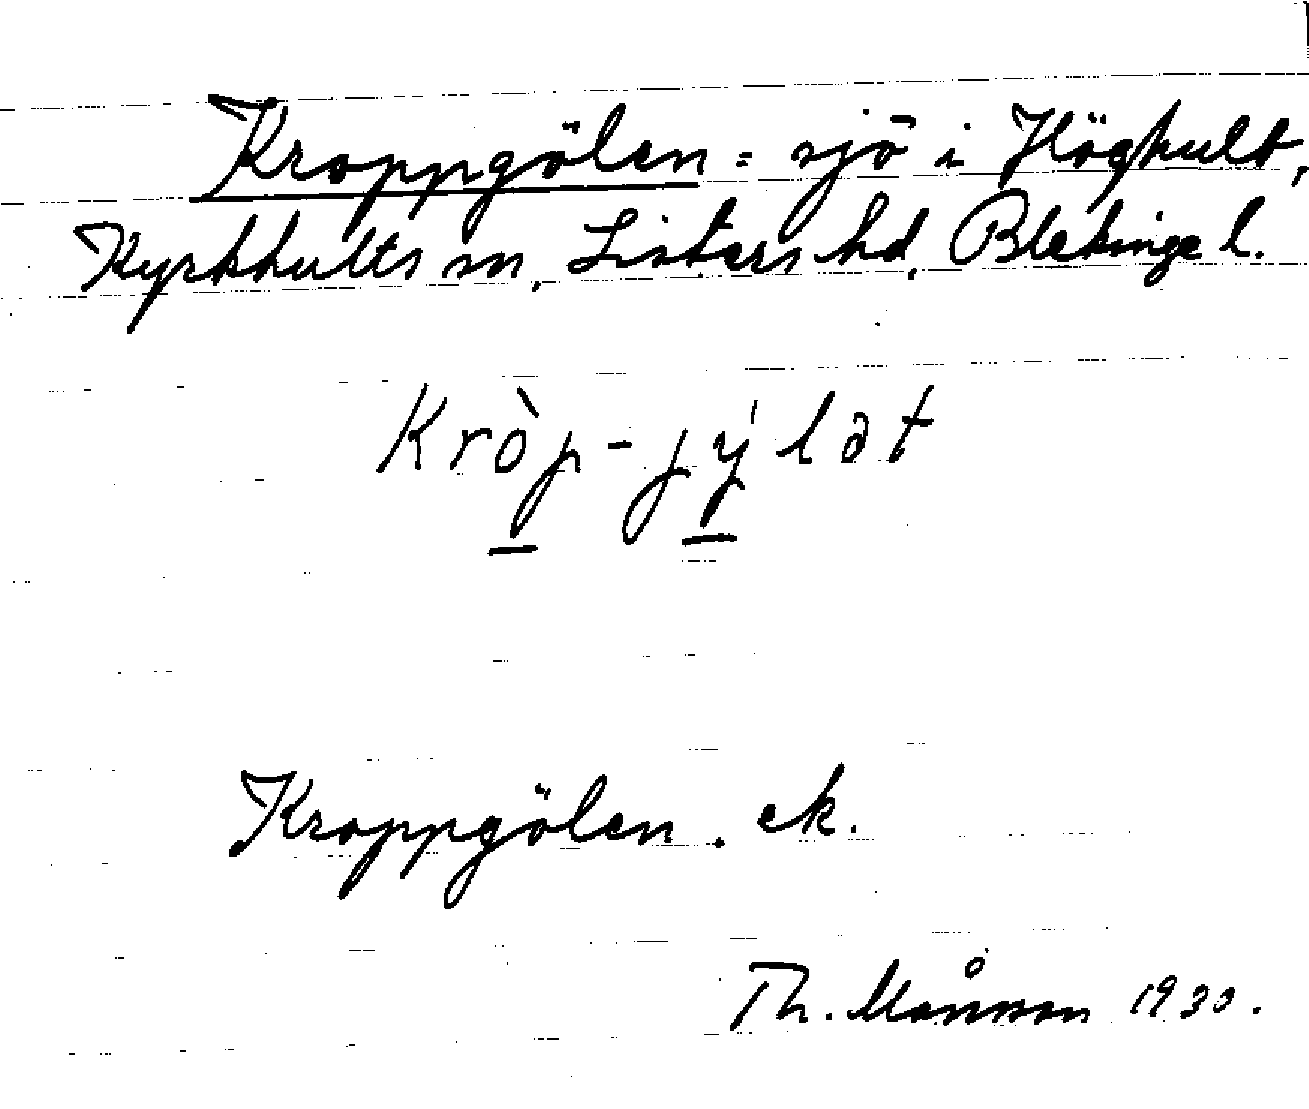 Kroppgölen = sjö i Höghult,
Kyrkhults sn, Listers hd, Blekinge l.
Kròp-jýlət
Kroppgölen. ek.
Th. Månsson 1930.